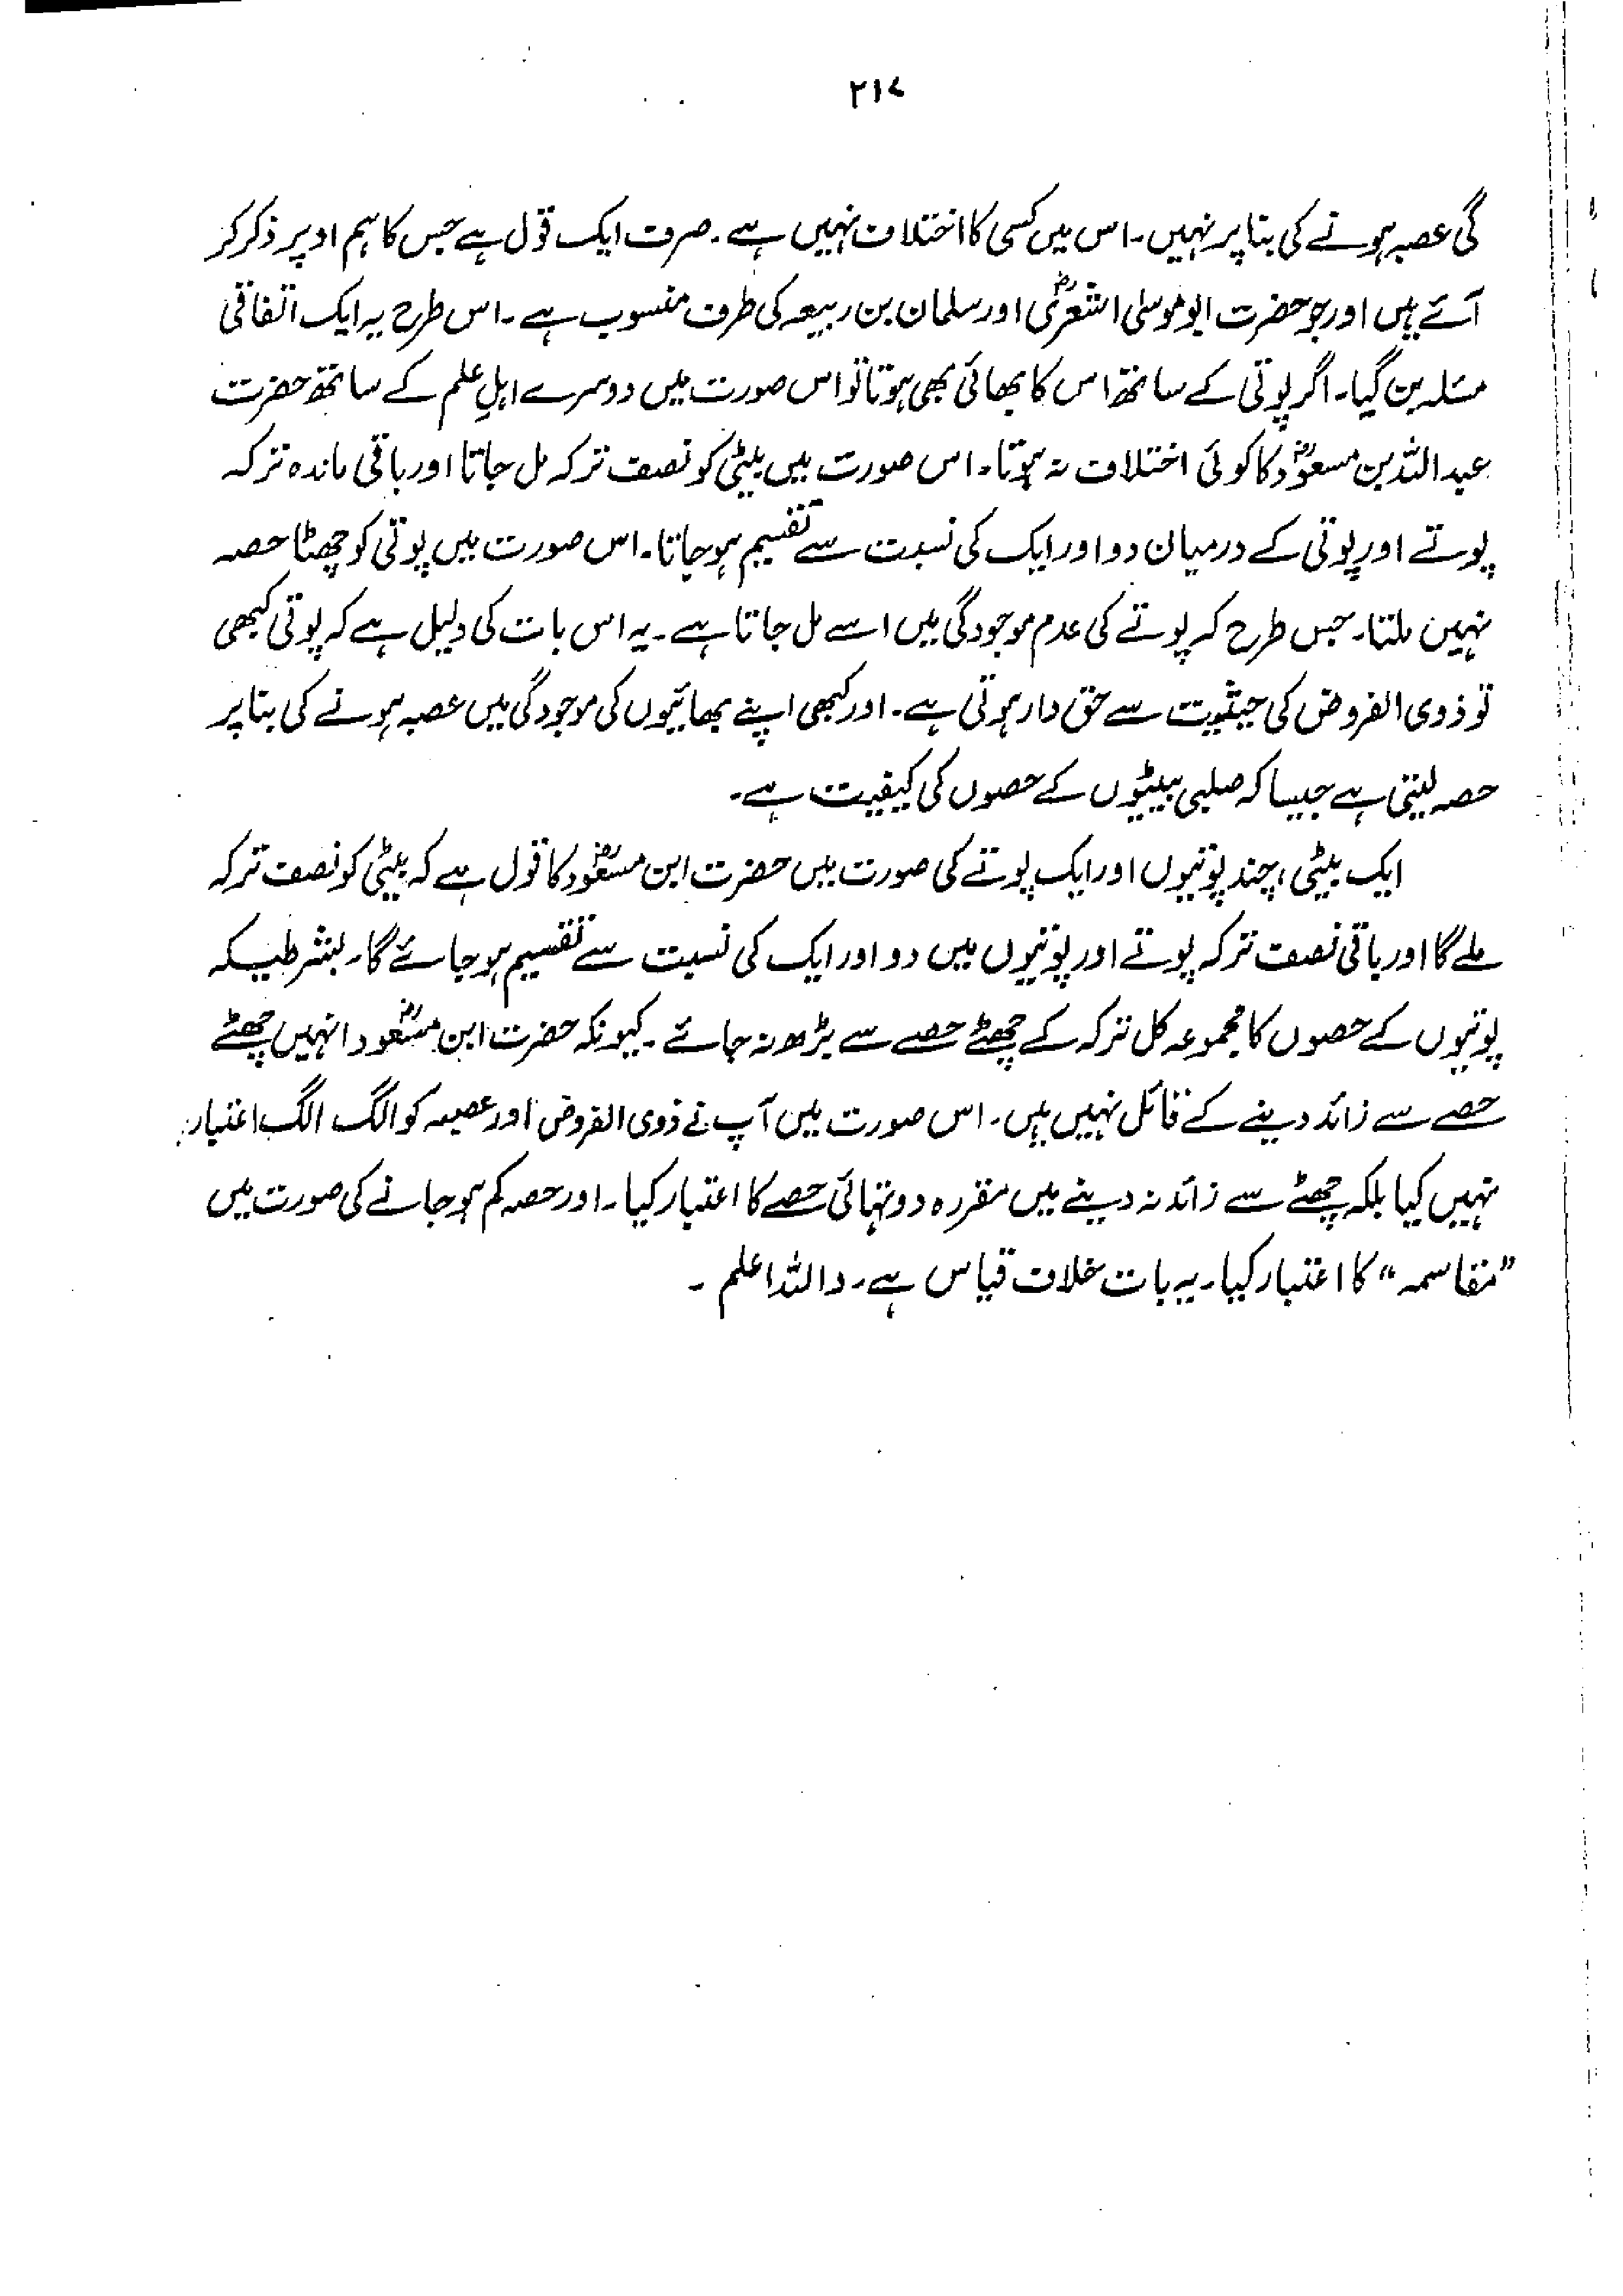 ۲۱۷
گی عصبہ ہونے کی بنا پر نہیں۔ اس میں کسی کا اختلاف نہیں ہے۔ صرف ایک قول ہے جس کا ہم اوپر ذکر کر
آئے ہیں اور جو حضرت ابو موسیٰ اشعریؓ اور سلمان بن ربیعہ کی طرف منسوب ہے۔ اس طرح یہ ایک اتفاقی
مسئلہ بن گیا۔ اگر پوتی کے ساتھ اس کا بھائی بھی ہوتا تو اس صورت میں دوسرے اہلِ علم کے ساتھ حضرت
عبداللہ بن مسعودؓ کا کوئی اختلاف نہ ہوتا۔ اس صورت میں بیٹی کو نصف ترکہ مل جاتا اور باقی ماندہ ترکہ
پوتے اور پوتی کے درمیان دو اور ایک کی نسبت سے تقسیم ہو جاتا۔ اس صورت میں پوتی کو چھٹا حصہ
نہیں ملتا۔ جس طرح کہ پوتے کی عدم موجودگی میں اسے مل جاتا ہے۔ یہ اس بات کی دلیل ہے کہ پوتی کبھی
تو ذوی الفروض کی حیثیت سے حق دار ہوتی ہے۔ اور کبھی اپنے بھائیوں کی موجودگی میں عصبہ ہونے کی بنا پر
حصہ لیتی ہے جیسا کہ صلبی بیٹیوں کے حصوں کی کیفیت ہے۔
ایک بیٹی، چند پوتیوں اور ایک پوتے کی صورت میں حضرت ابن مسعودؓ کا قول ہے کہ بیٹی کو نصف ترکہ
ملے گا اور باقی نصف ترکہ پوتے اور پوتیوں میں دو اور ایک کی نسبت سے تقسیم ہو جائے گا۔ بشرطیکہ
پوتیوں کے حصوں کا مجموعہ کل ترکہ کے چھٹے حصے سے بڑھ نہ جائے۔ کیونکہ حضرت ابن مسعودؓ انہیں چھٹے
حصے سے زائد دینے کے قائل نہیں ہیں۔ اس صورت میں آپ نے ذوی الفروض اور عصبہ کو الگ الگ اعتبار
نہیں کیا بلکہ چھٹے سے زائد نہ دینے میں مقررہ دو تہائی حصے کا اعتبار کیا۔ اور حصہ کم ہو جانے کی صورت میں
”مقاسمہ“ کا اعتبار کیا۔ یہ بات خلاف قیاس ہے۔ واللہ اعلم۔